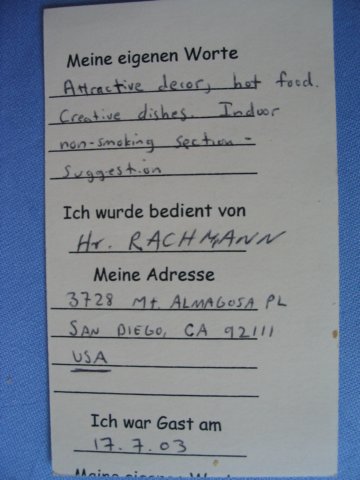 Meine eigenen Worte
Attractive decor, hot food.
Creative dishes. Indoor
non-smoking section -
suggestion
Ich wurde bedient von
Hr. RACHMANN
Meine Adresse
3728 Mt. ALMAGOSA PL
SAN DIEGO, CA 92111
USA
Ich war Gast am
17.7.03
Meine eigenen Worte